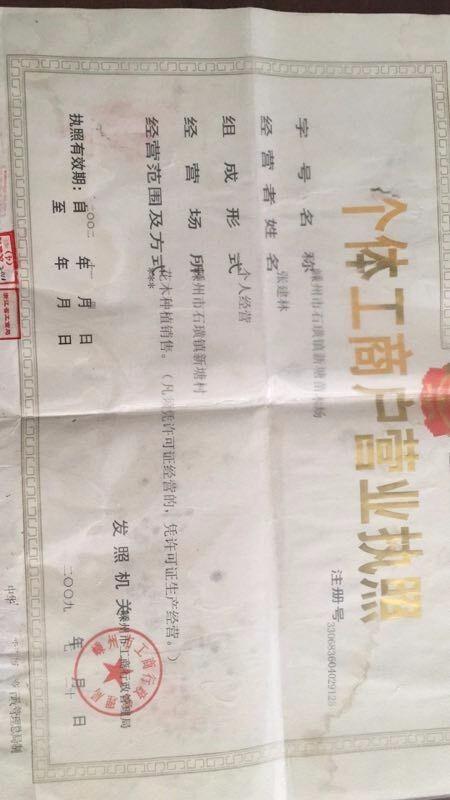 个体工商户营业执照
注册号 330683604029128
字号名称 嵊州市石璜镇新塘苗木场
经营者姓名 张建林
组成形式 个人经营
经营场所 嵊州市石璜镇新塘村
经营范围及方式 花木种植销售。(凡 凭许可证经营的,凭许可证生产经营。)***
执照有效期:自 二〇〇二 年 一 月 日
至 年 月 日
发照机关 嵊州市工商行政管理局
二〇〇九 年 月 二十 日